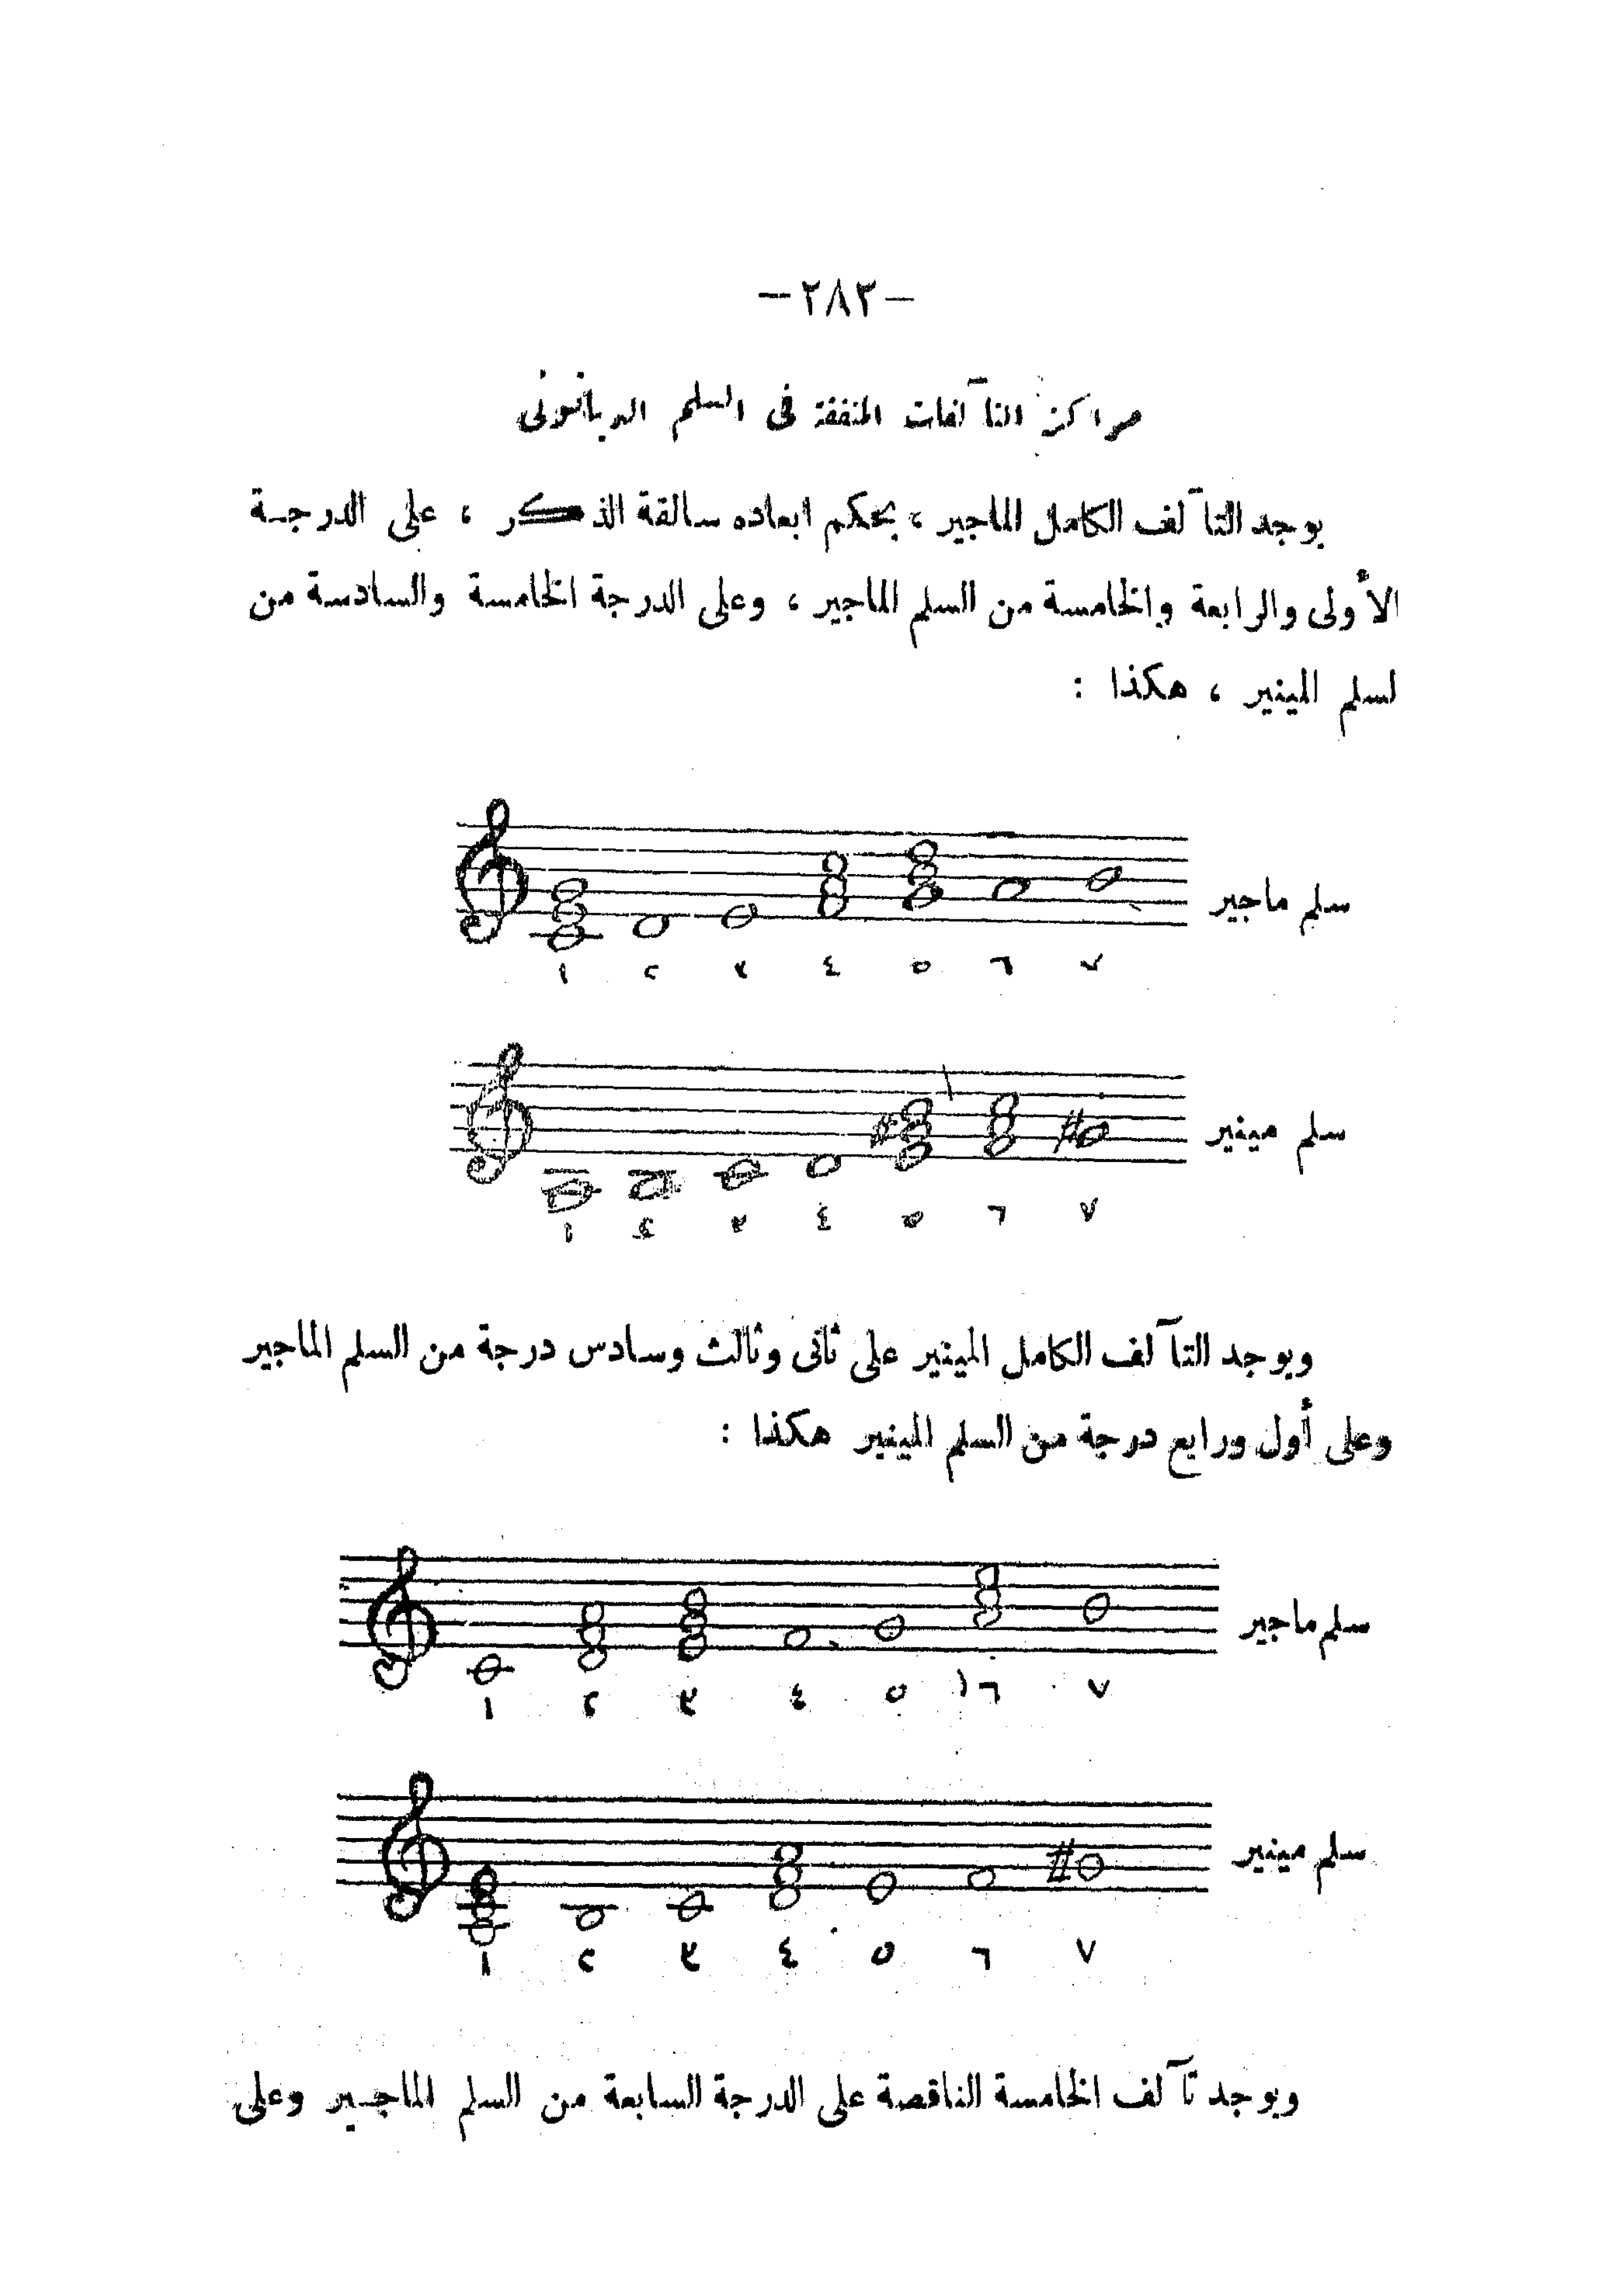 —٢٨٣—
مراكز التآلفات المتفقة فى السلم الدياتونى
يوجد التآلف الكامل الماجير ، بحكم ابعاده سالفة الذكر ، على الدرجة
الأولى والرابعة والخامسة من السلم الماجير ، وعلى الدرجة الخامسة والسادسة من
لسلم المينير ، هكذا :
سلم ماجير
١ ٢ ٣ ٤ ٥ ٦ ٧
سلم مينير
١ ٢ ٣ ٤ ٥ ٦ ٧
ويوجد التآلف الكامل المينير على ثانى وثالث وسادس درجة من السلم الماجير
وعلى أول ورابع درجة من السلم المينير هكذا :
سلم ماجير
١ ٢ ٣ ٤ ٥ ٦ ٧
سلم مينير
١ ٢ ٣ ٤ ٥ ٦ ٧
ويوجد تآلف الخامسة الناقصة على الدرجة السابعة من السلم الماجير وعلى